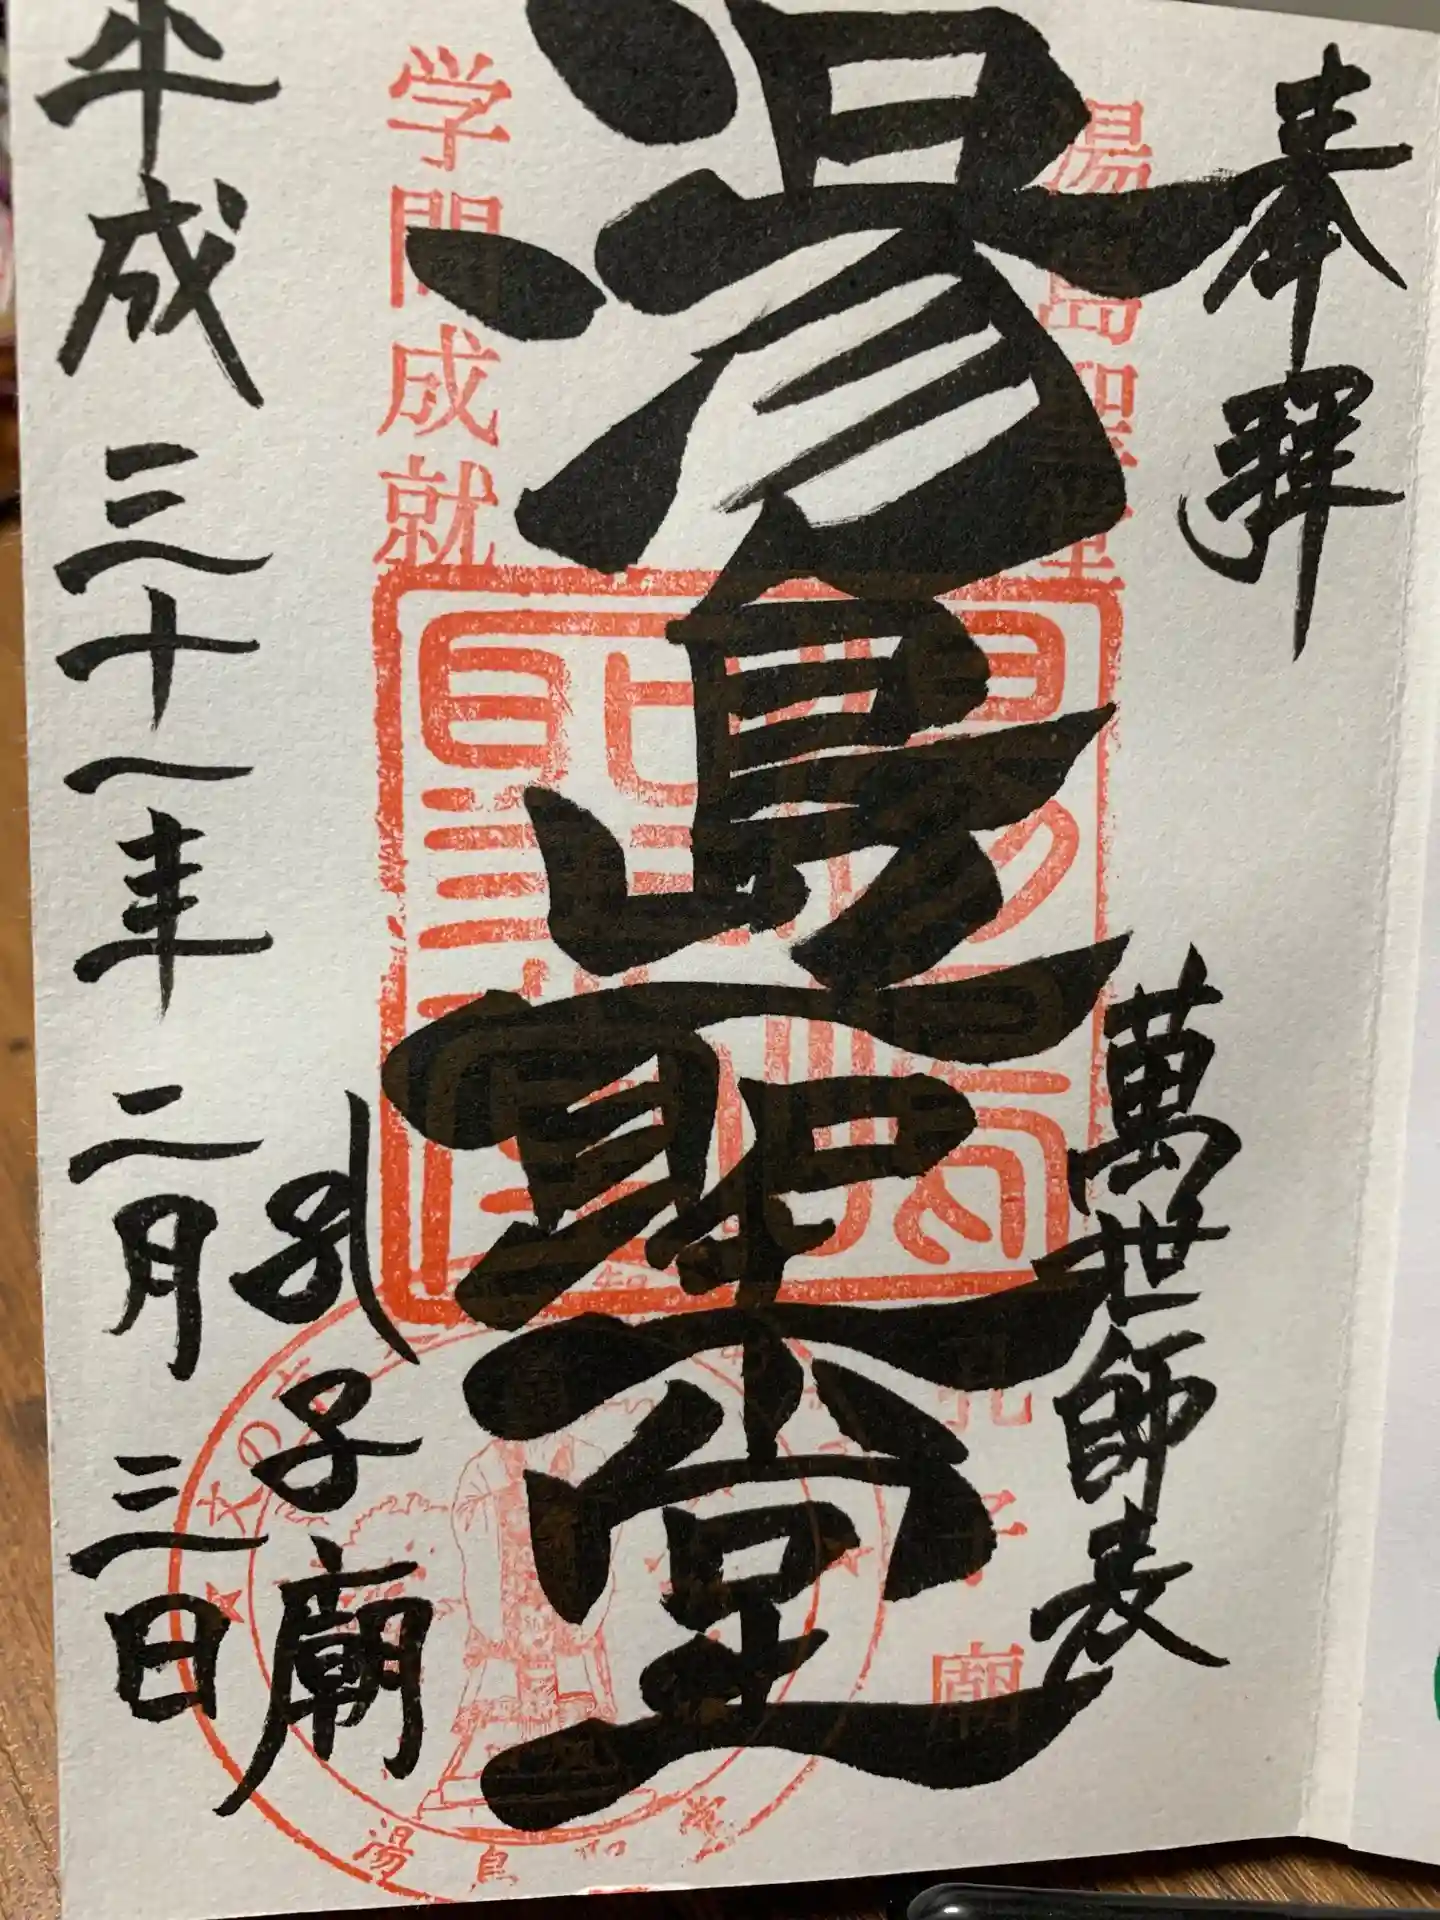 奉拝
萬世師表
湯島聖堂
湯島聖堂
孔子廟
学問成就
孔子廟
平成三十一年二月三日
湯島聖堂